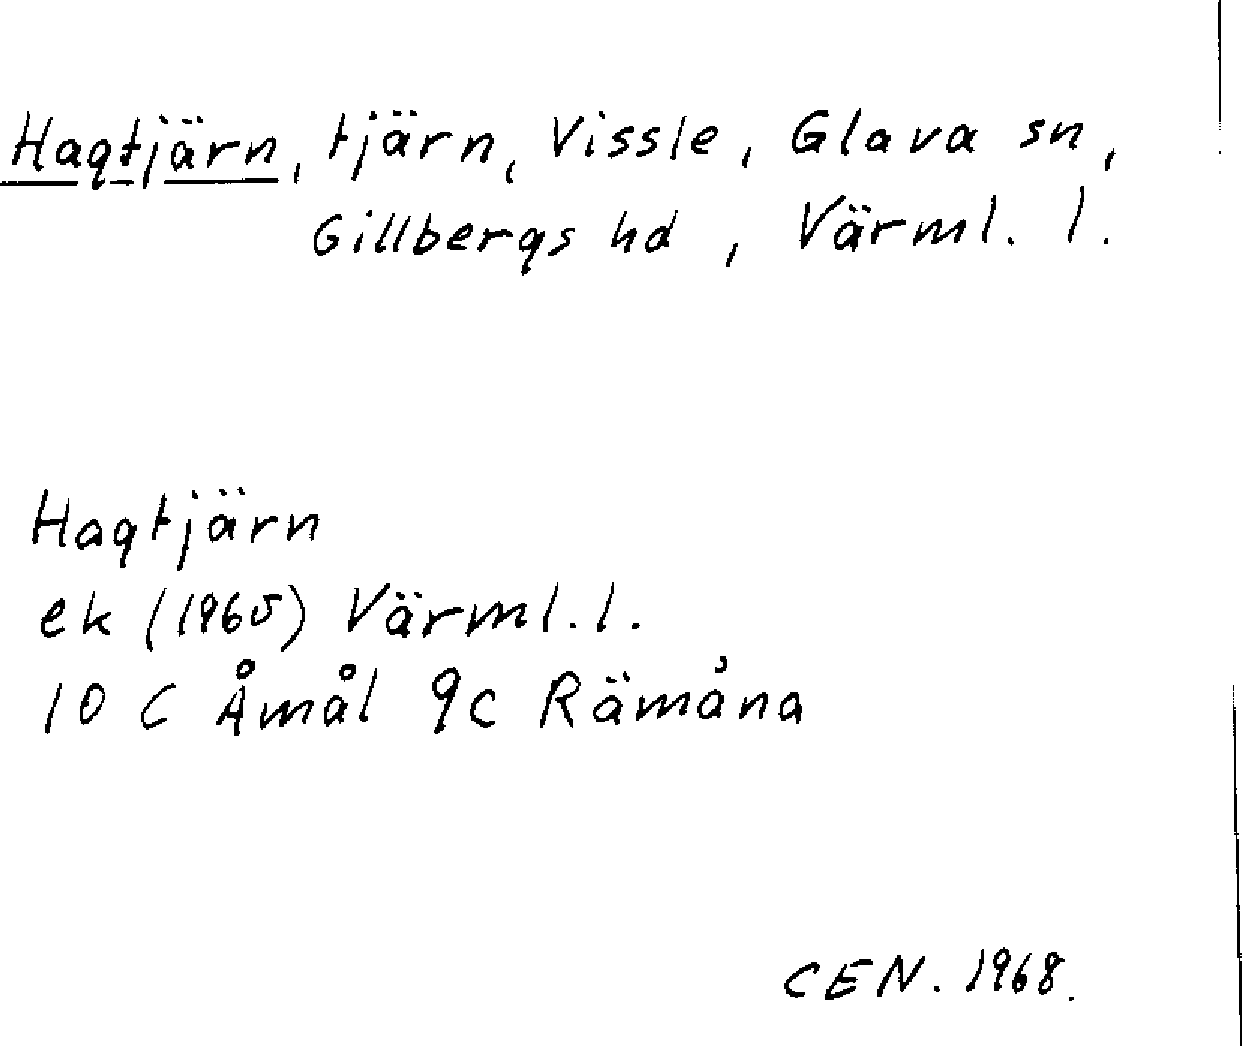 Hagtjärn, tjärn, Vissle, Glava sn,
Gillbergs hd, Värml. l.
Hagtjärn
ek (1965) Värml. l.
10 C Åmål 9c Rämåna
CEN. 1968.